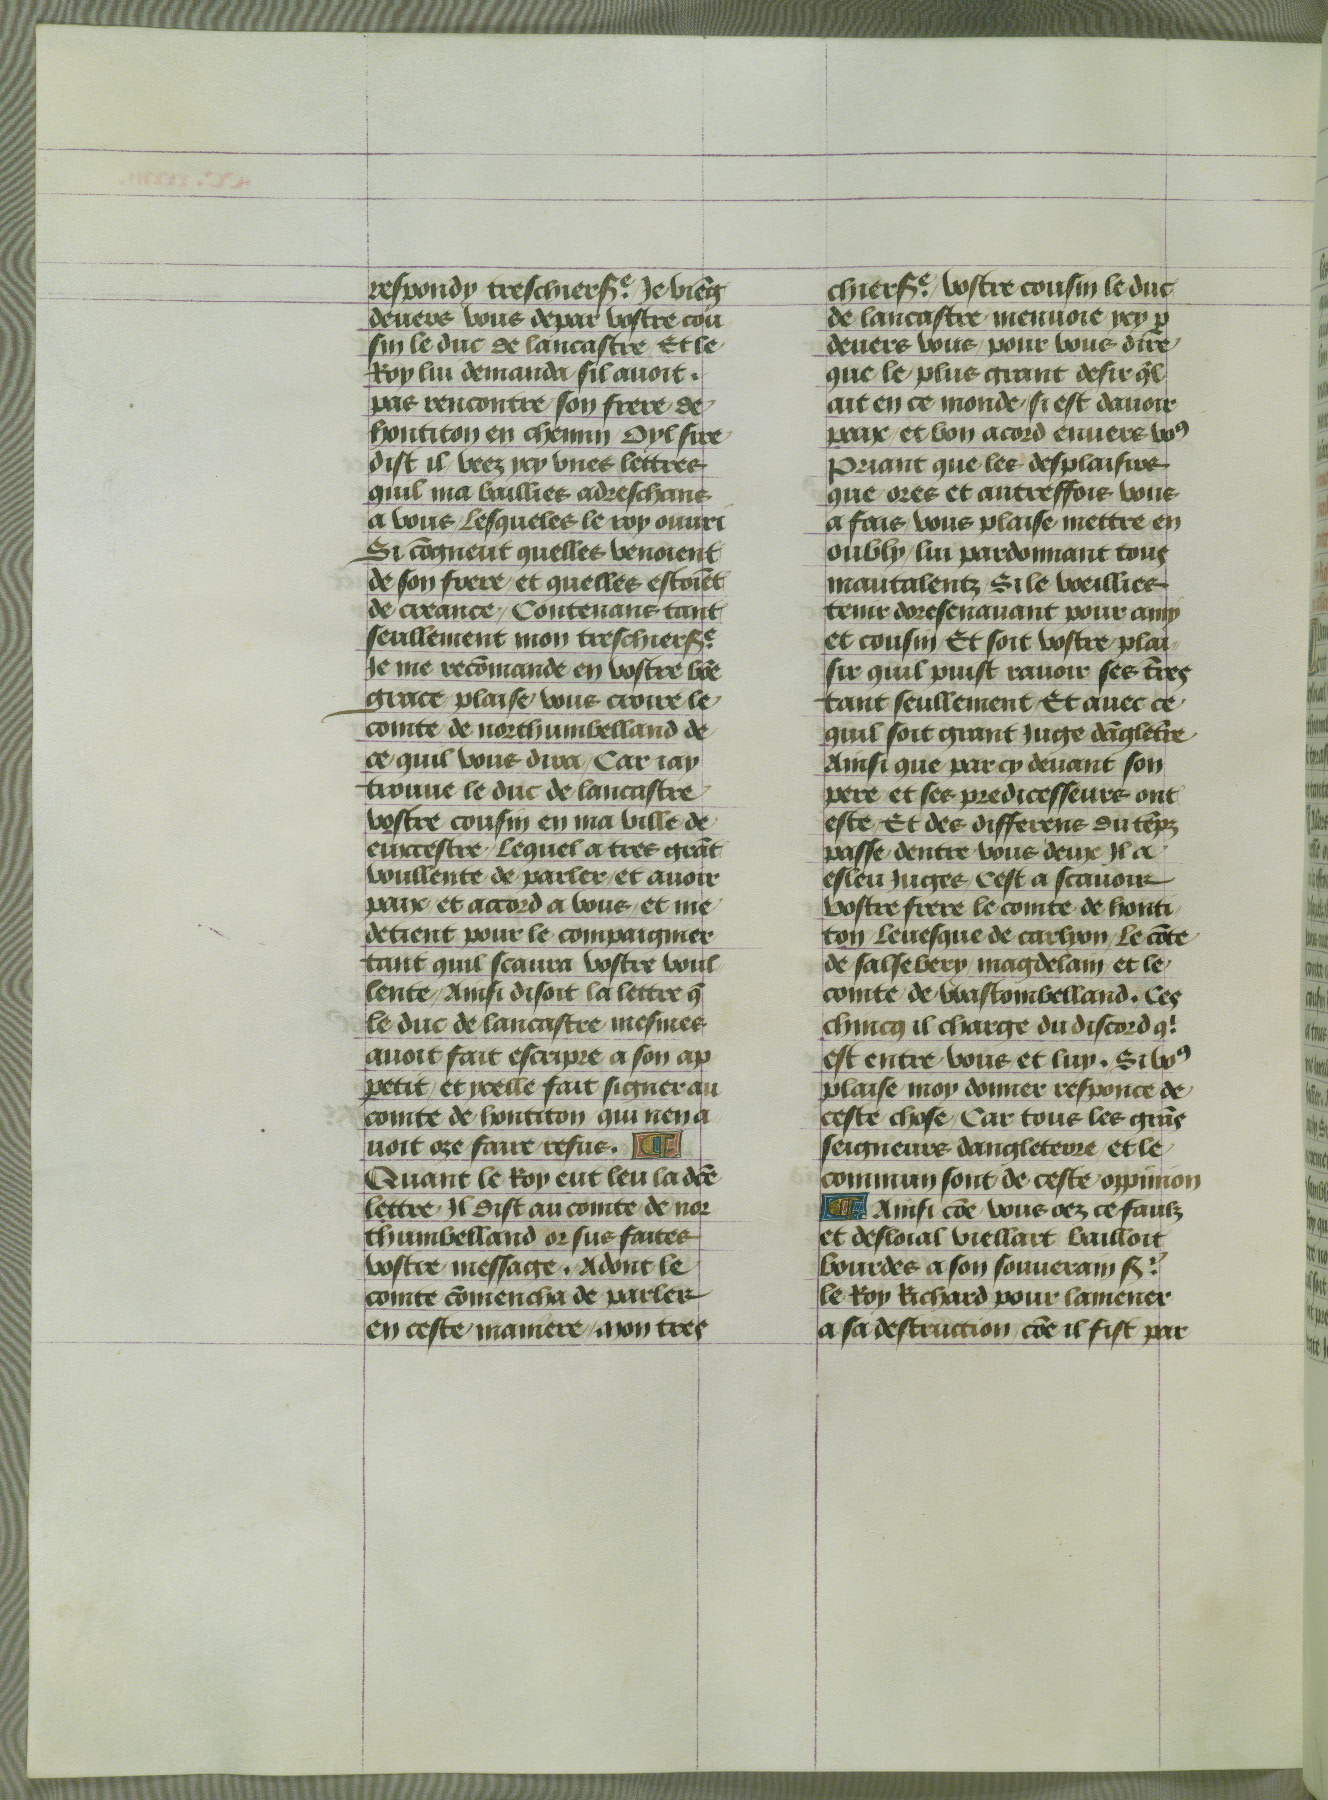 respondy treschierss.e Je vie͞g
deuers vous depar vostre cou
sin le duc de lancastre Et le
Roy lui demanda sil auoit.
pas rencontre son frere de
hontiton en chemin Oyl sire
dist il / veez ycy vnes lettres
quil ma baillies adreschans
a vous Lesqueles le roy ouuri
Si co͞gneut quelles venoient
de son frere et quelles estoie͞t
de creance / Contenans tant
seullement mon treschierss.e
Je me reco͞mande en vostre bo͞e
grace plaise vous croire le
comte de northumbelland de
ce quil vous dira / Car iay
trouue le duc de lancastre
vostre cousin en ma ville de
eurcestre / Lequel a tres gra͞t
voullente de parler et auoir
paix et accord a vous et me
detient pour le compaignier
tant quil scaura vostre voul
lente / Ainsi disoit la lettre q͞
le duc de lancastre mesmes
auoit fait escripre a son ap
petit / et ycelle fait signer au
comte de hontiton qui nen a
uoit oze faire refus. ¶
Quant le Roy eut leu la dc͞e
lettre Il dist au comte de nor
thumbelland or sus faites
vostre message. Adont le
comte co͞mencha de parler
en ceste maniere / mon tres
chierss.e / vostre cousin le duc
de lancastre menuoie ycy p̱
deuers vous pour vous dire
que le plus grant desir q͞l
ait en ce monde / si est dauoir
paix et bon acord enuers voꝰ
Priant que les desplaisirs
que ores et autreffois vous
a fais vous plaise mettre en
oubly / lui pardonnant tous
mautalentz Si le vueillies
tenir doresenauant pour amy
et cousin Et soit vostre plai
sir quil puist rauoir ses tr͞es
tant seullement Et auec ce
quil soit grant Juge da͞gletr͞e
Ainsi que par cy deuant son
pere et ses predicesseurs ont
este Et des differens du te͞pz
passe dentre vous deux Il a
esleu Juges Cest a scauoir
vostre frere le comte de honti
ton Leuesque de carlyon / Le co͞te
de salsebery magdelain et le
comte de wastombelland. Ces
chincq il charge du discord qⁱ
est entre vous et luy. Si voꝰ
plaise moy donner responce de
ceste chose / Car tous les gra͞s
seigneurs dangleterre et le
commun sont de ceste oppinion
¶ Ainsi co͞e vous oez ce faulz
et desloial viellart bailloit
bourdes a son souuerain ss.r
le Roy Richard pour lamener
a sa destruction / co͞e il fist par